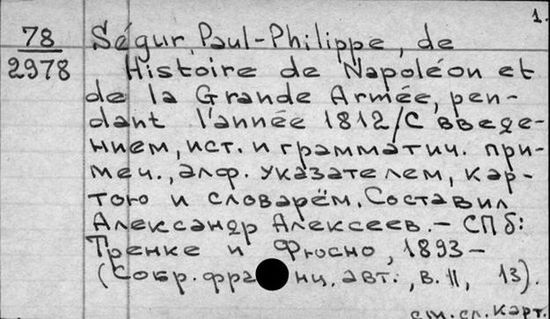 1.
78 Ségur, Paul-Philippe, de
2978 Histoire de Napoléon et
de la Grande Armée, pen-
dant l'année 1812/С введе-
нием, ист. и грамматич. при-
меч., алф. указателем, кар-
тою и словарём. Составил
Александр Алексеев. – СПб:
Тренке и Фюсно, 1893 –
(Собр. фра нц. авт., в. II, 13).
см. сл. карт.